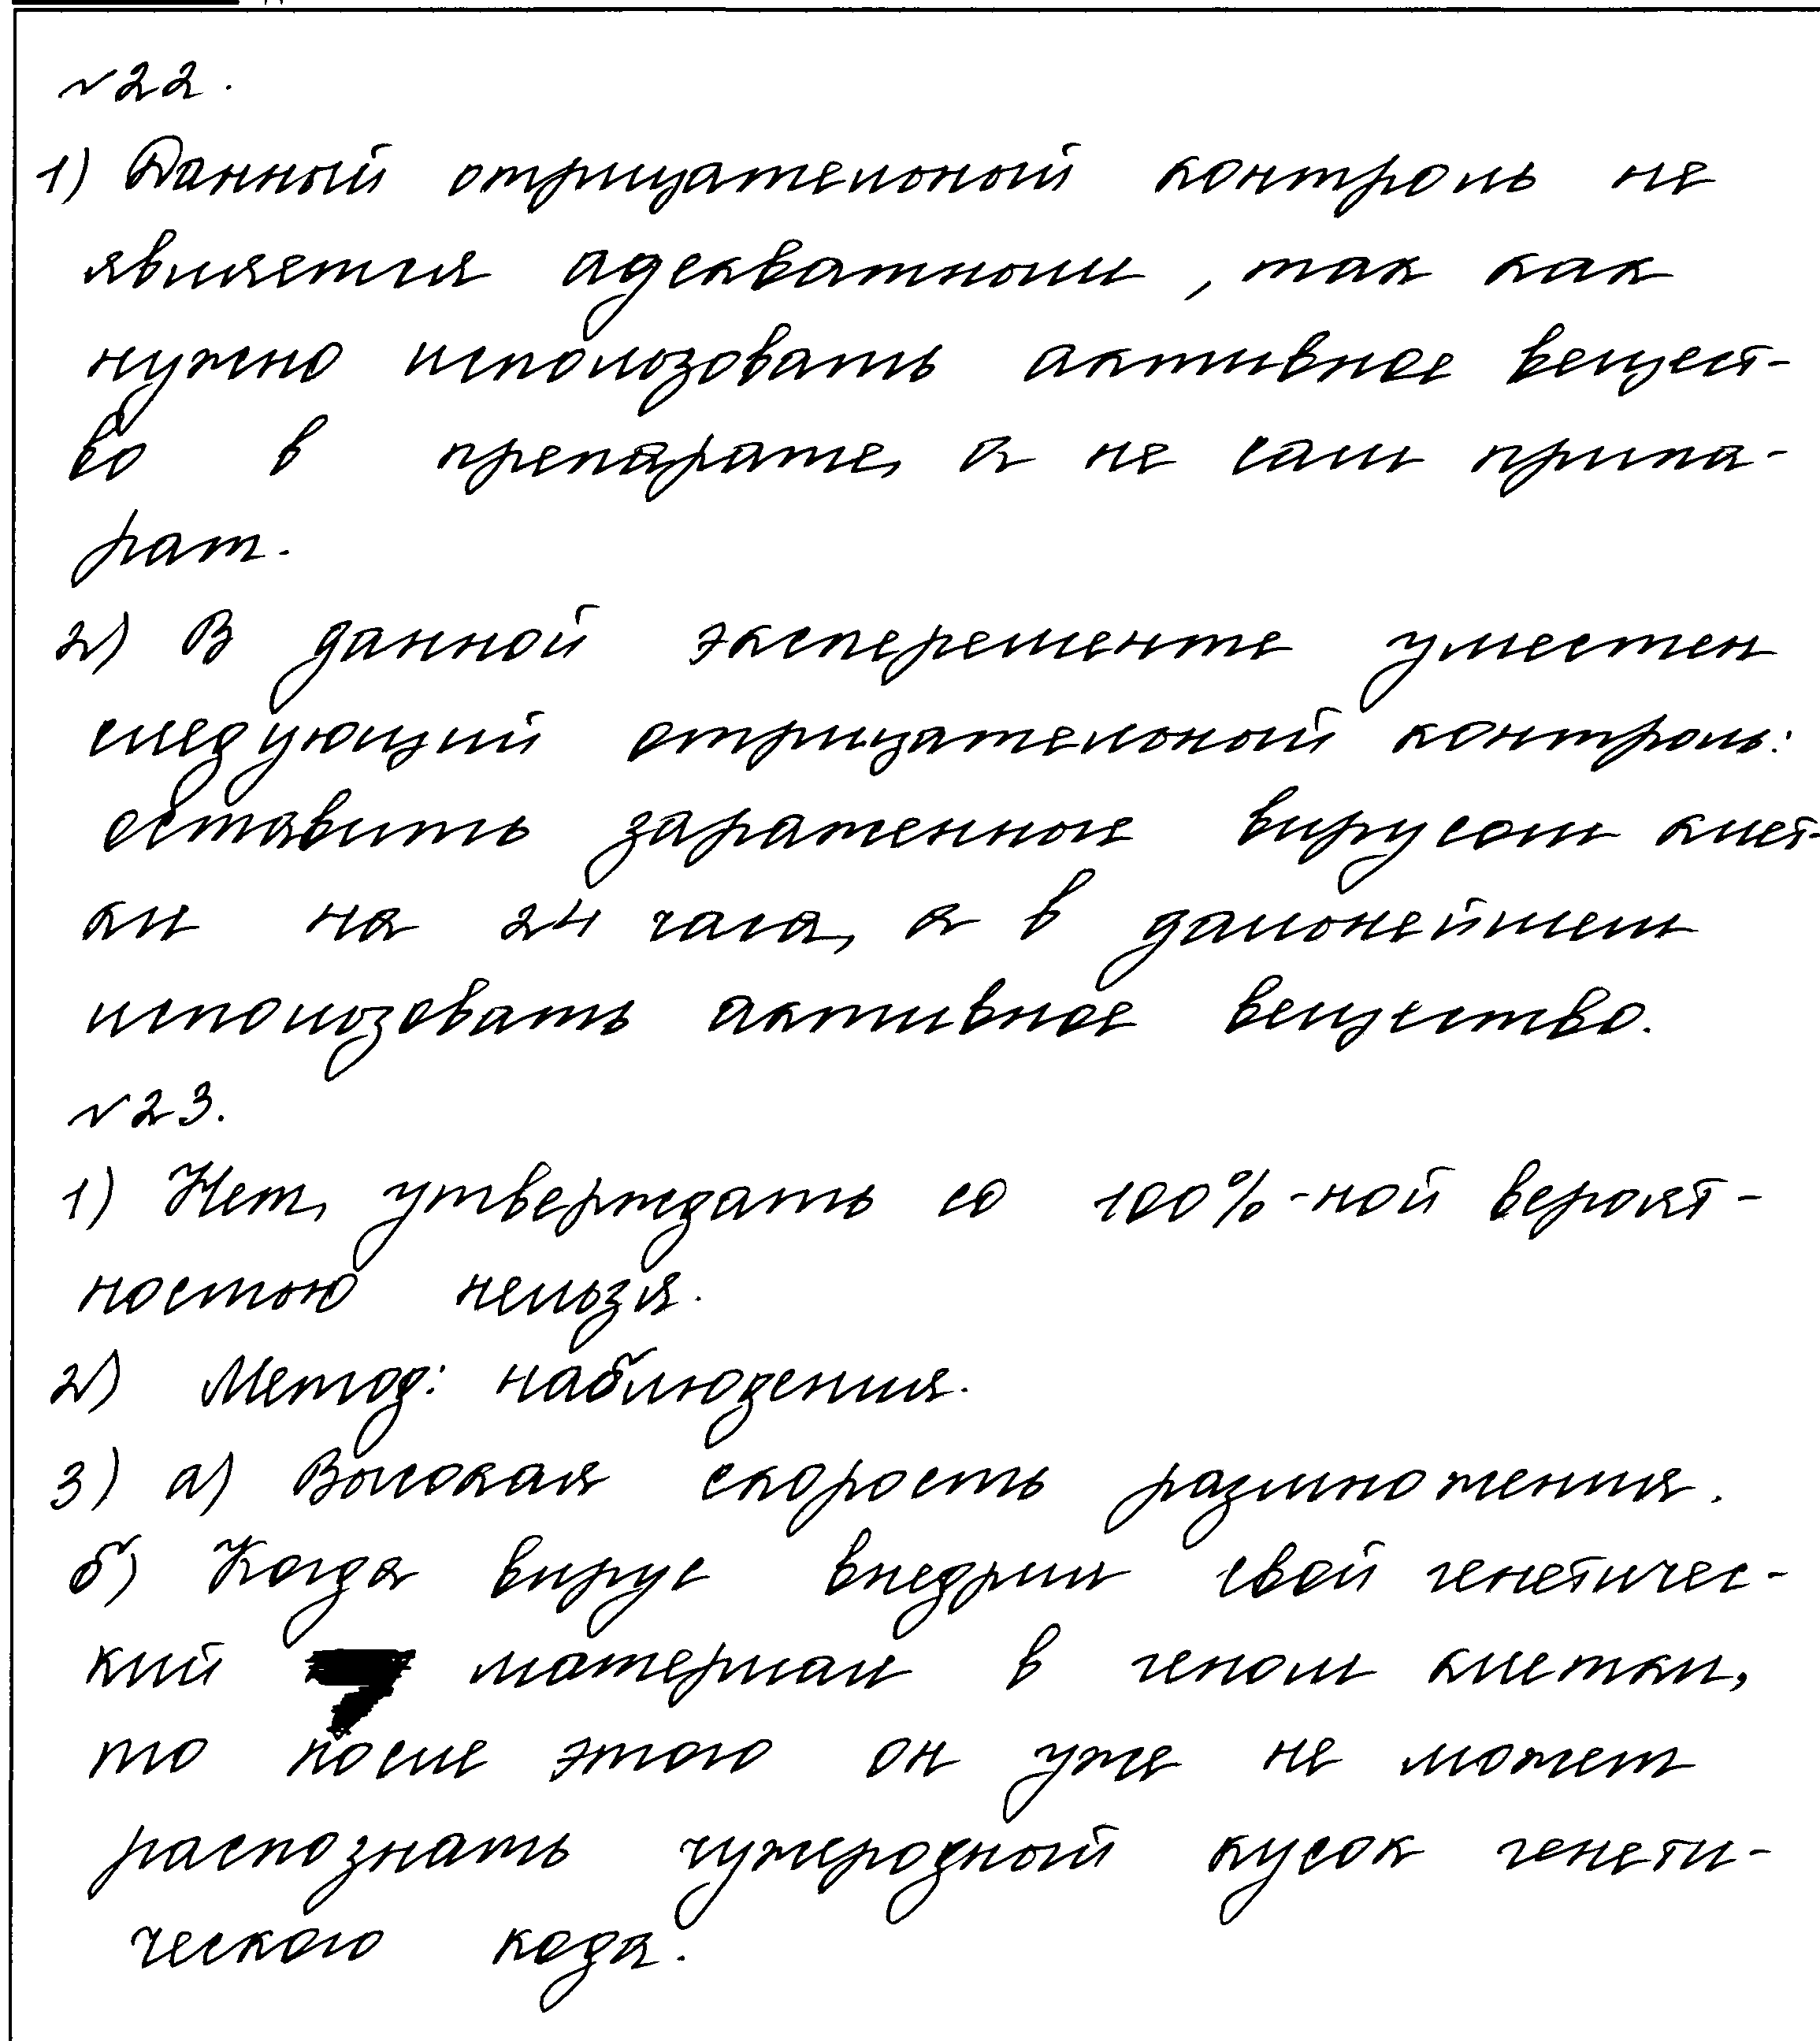 №22.
1) Данный отрицательный контроль не
является адекватным, так как
нужно использовать активное вещест-
во в препарате, а не сам припа-
рат.
2) В данной эксперементе уместен
следующий отрицательный контроль:
оставить зараженные вирусом клет-
ки на 24 часа, а в дальнейшем
использовать активное вещество.
№23.
1) Нет, утверждать со 100%-ной вероят-
ностью нельзя.
2) Метод: наблюдения.
3) а) Высокая скорость размножения.
б) Когда вирус внедрил свой генетичес-
кий материал в геном клетки,
то после этого он уже не может
распознать чужеродный кусок генети-
ческого кода.